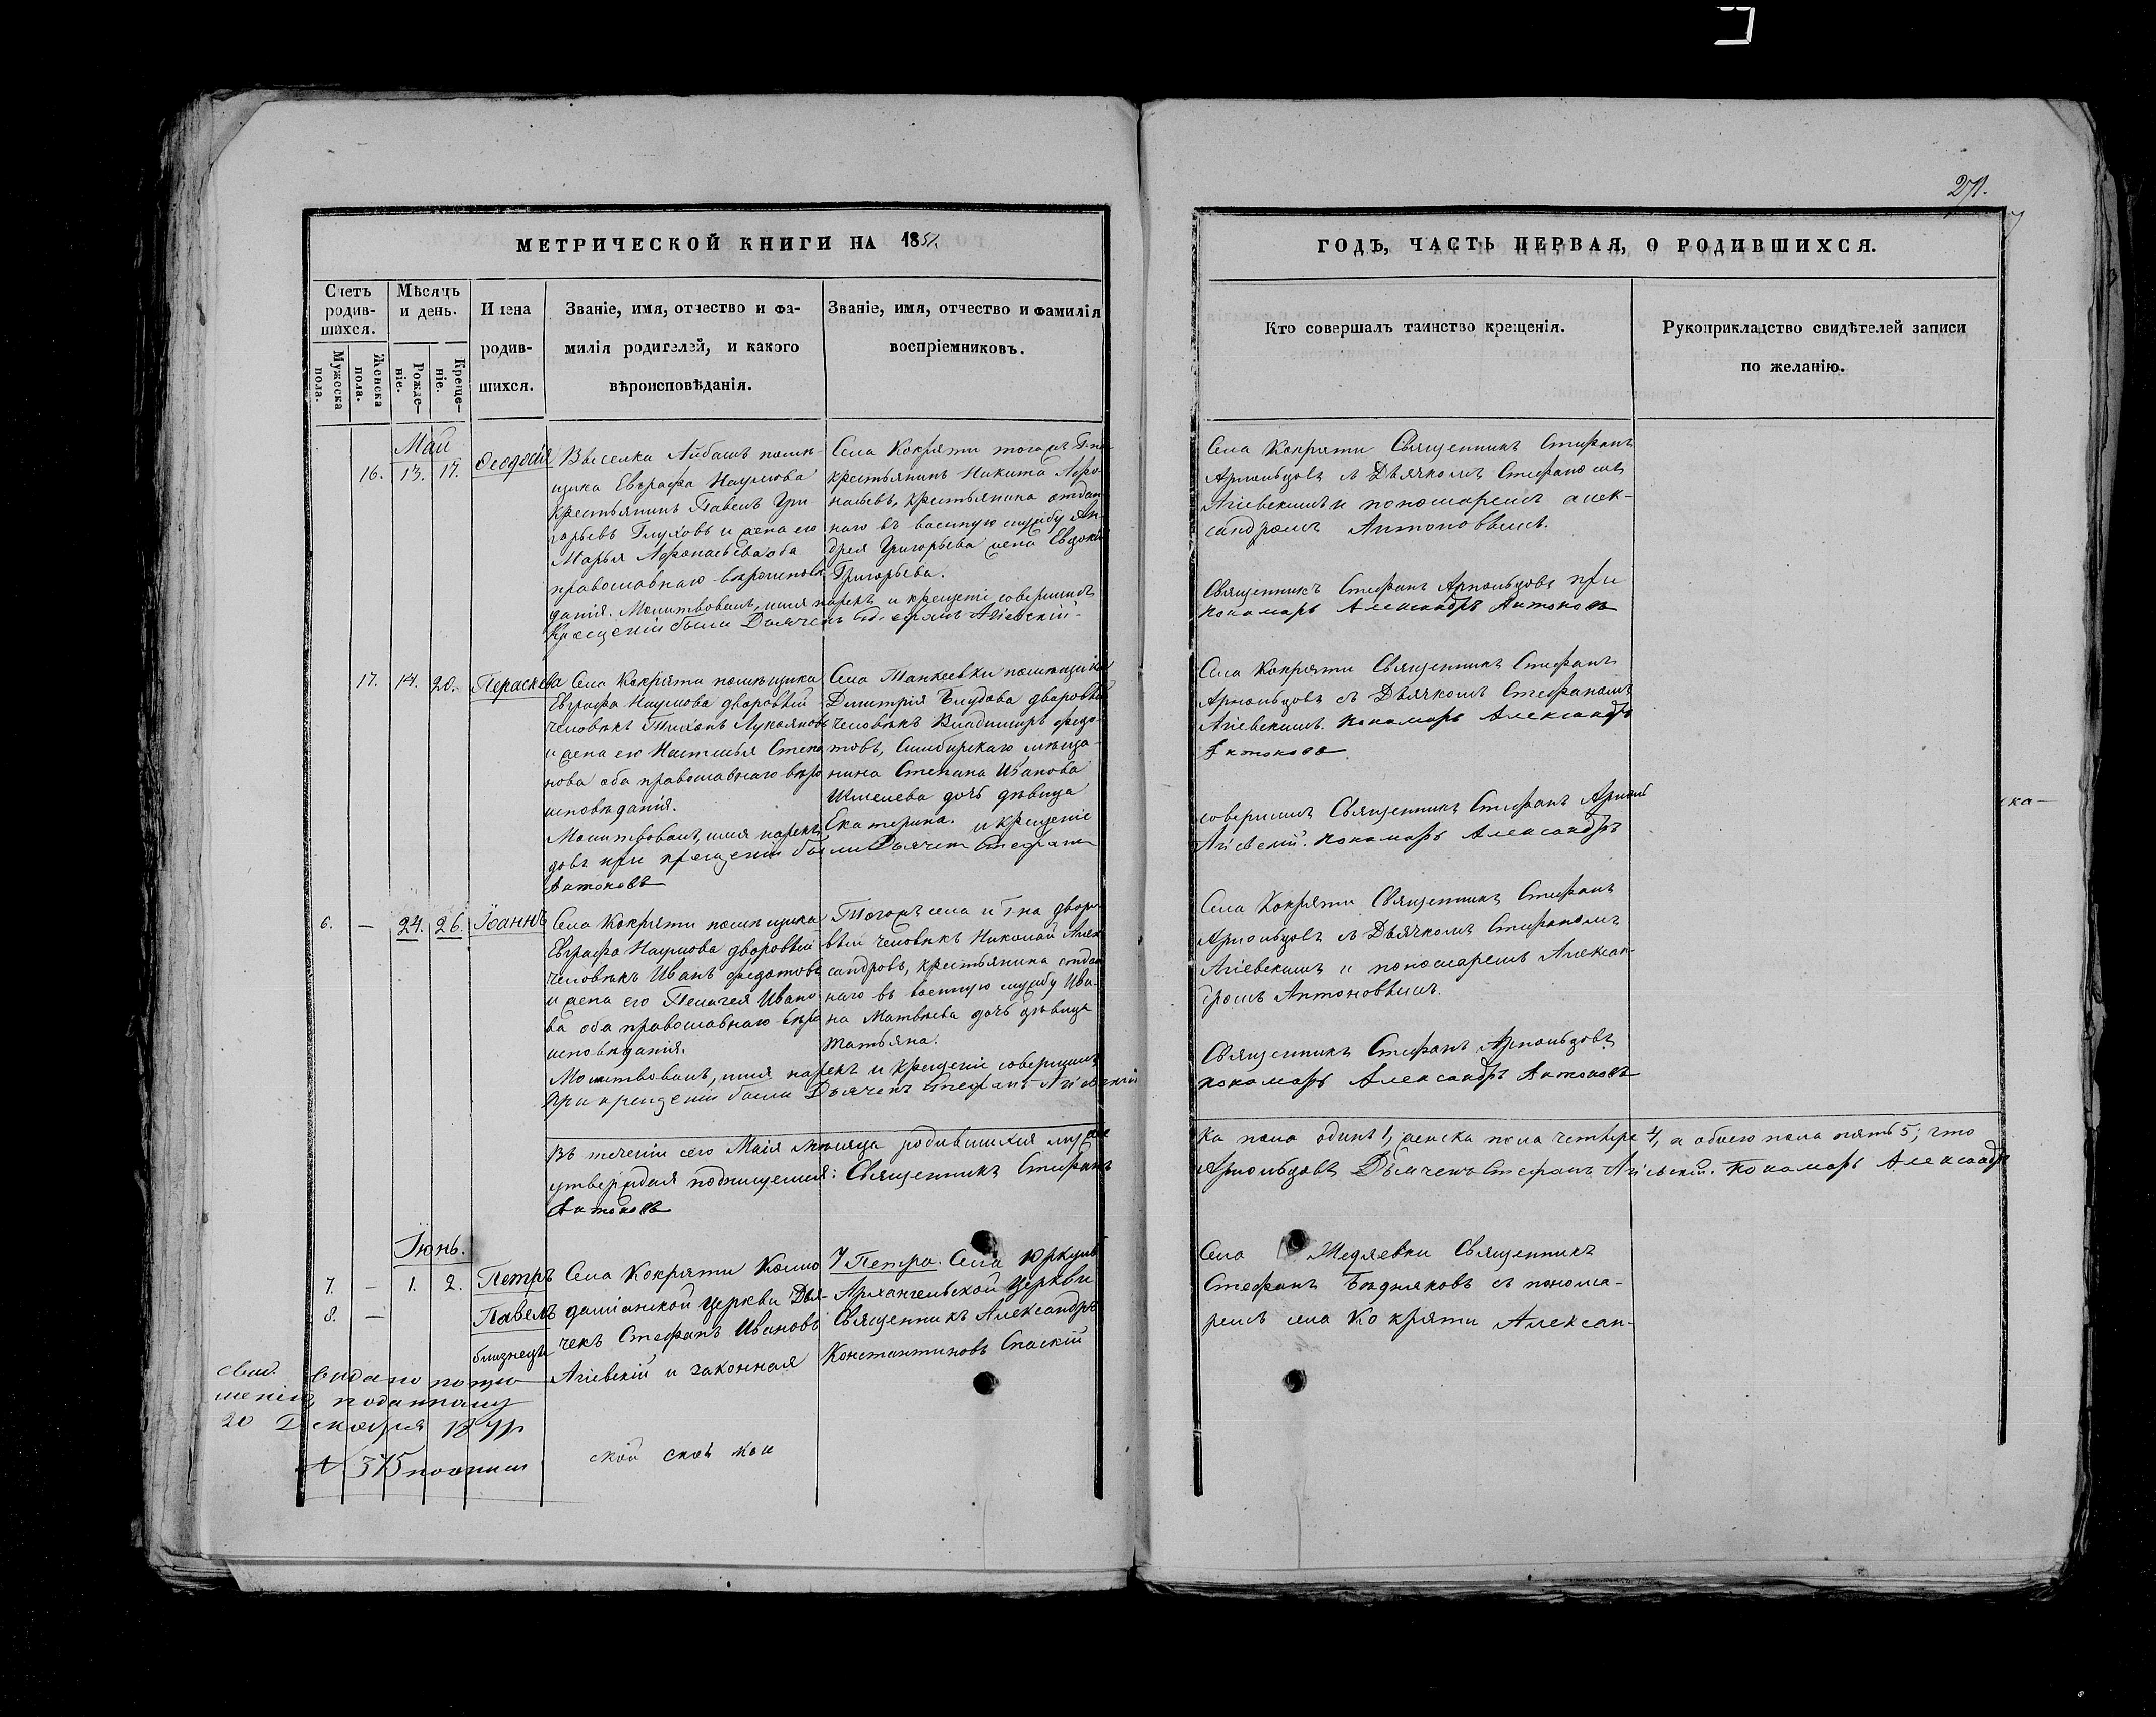 271.
МЕТРИЧЕСКОЙ КНИГИ НА 1851.
Счетъ родив-шихся.
Мужеска пола.
Женска пола.
Мѣсяцъ и день.
Рожде-ніе.
Креще-ніе.
Имена родив-шихся.
Званіе, имя, отчество и фа-
милія родителей, и какого
вѣроисповѣданія.
Званіе, имя, отчество и фамилія
воспріемниковъ.
Май
16. 13. 17. Ѳеодосія
Выселка Айбашъ помѣ-
щика Евграфа Наумова
крестьянинъ Павелъ Гри
горьевъ Глуховъ и жена его
Марья Афанасьева оба
православнаго вѣроиспове
данія. Молитвовалъ, имя нарекъ и крещеніе совершилъ
Крещеніи были Дьячекъ Стефанъ Агіевскій
Села Кокряти тогожъ Г-на
крестьянинъ Никита Афо
насьевъ, крестьянина отдан
наго въ военную службу Ан-
дрея Григорьева жена Евдокія
Григорьева.
17. 14. 20. Параскева
Села Кокряти помѣщика
Евграфа Наумова дворовый
человѣкъ Тихонъ Лукояновъ
и жена его Настасья Степа
нова оба православнаго вѣро
исповѣданія.
Молитвовалъ, имя нарекъ, и крещеніе
довъ при крещеніи были Дьячекъ Стефанъ
Антоновъ
Села Танкеевки помѣщика
Димитрія Блудова дворовый
человѣкъ Владимиръ Федо-
товъ, Симбирскаго мѣща-
нина Степана Иванова
Шмелева дочь дѣвица
Екатерина.
6. — 24. 26. Іоаннъ
Села Кокряти помѣщика
Евграфа Наумова дворовый
человѣкъ Иванъ Федотовъ
и жена его Пелагея Ивано
ва оба православнаго вѣро
исповѣданія.
Молитвовалъ, имя нарекъ и крещеніе совершилъ
при крещеніи были Дьячекъ Стефанъ Агіевскій
Тогожъ села и Г-на дворо
вый человѣкъ Николай Алек
сандровъ, крестьянина отдан
наго въ военную службу Ива-
на Матвѣева дочь дѣвица
Татьяна.
Въ теченіи сего Маія мѣсяца родившихся муже
утверждая подпишемся: Священникъ Стефанъ
Антоновъ
Іюнь.
7. — 1. 2. Петръ
8. — Павелъ
близнецы
Села Кокряти Космо
даміанской церкви Дья-
чекъ Стефанъ Ивановъ
Агіевскій и законная
У Петра. Села Юркуль
Архангельской церкви
Священникъ Александръ
Константиновъ Спаскій
Свид. выдано по про
шенію поданному
20 Декабря
№ 575
ГОДЪ, ЧАСТЬ ПЕРВАЯ, О РОДИВШИХСЯ.
Кто совершалъ таинство крещенія.
Рукоприкладство свидѣтелей записи
по желанію.
Села Кокряти Священникъ Стефанъ
Арнольдовъ съ Дьячкомъ Стефаномъ
Агіевскимъ и пономаремъ Алек-
сандромъ Антоновымъ.
Священникъ Стефанъ Арнольдовъ при
пономарь Александръ Антоновъ
Села Кокряти Священникъ Стефанъ
Арнольдовъ съ Дьячкомъ Стефаномъ
Агіевскимъ. пономарь Александръ
Антоновъ
совершилъ Священникъ Стефанъ Арноль
Агіевскій. пономарь Александръ
Села Кокряти Священникъ Стефанъ
Арнольдовъ съ Дьячкомъ Стефаномъ
Агіевскимъ и пономаремъ Алексан-
дромъ Антоновымъ.
Священникъ Стефанъ Арнольдовъ
пономарь Александръ Антоновъ
ка пола одинъ 1, женска пола четыре 4, а обоего пола пять 5; что
Арнольдовъ Дьячекъ Стефанъ Агіевскій. пономарь Александръ
Села Медяевки Священникъ
Стефанъ Бѣдняковъ съ понома-
ремъ села Кокряти Алексан-